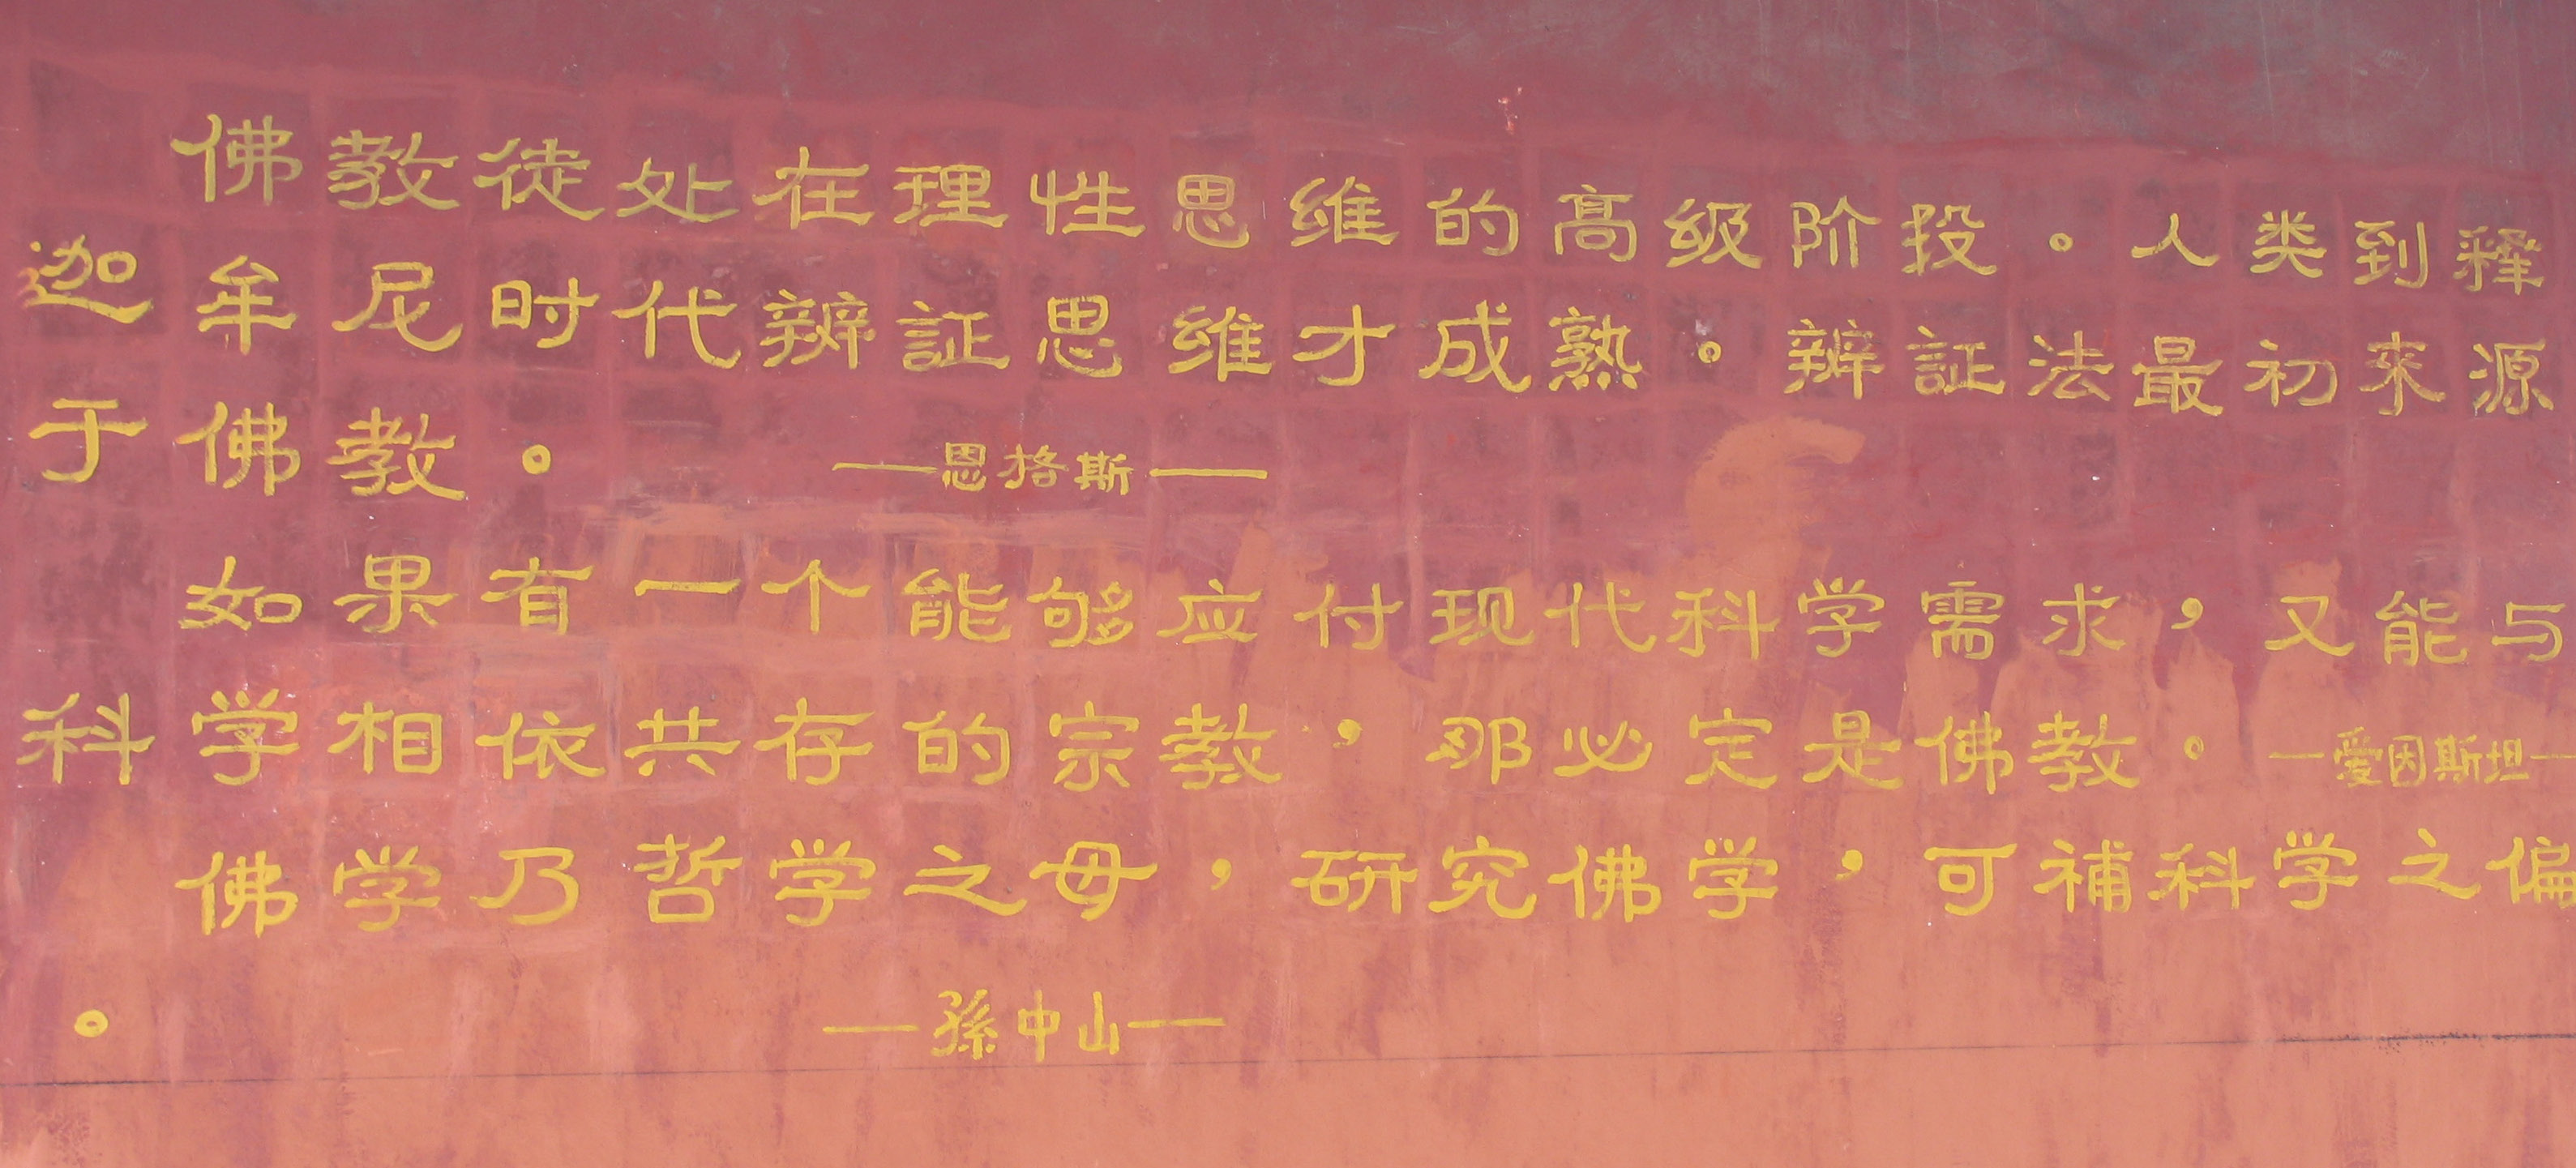 佛教徒处在理性思维的高级阶投。人类到释
迦牟尼时代辨証思维才成熟。辨証法最初来源
于佛教。 ——恩格斯——
如果有一个能够应付现代科学需求，又能与
科学相依共存的宗教，那必定是佛教。—爱因斯坦—
佛学乃哲学之母，研究佛学，可补科学之偏
。 ——孫中山——